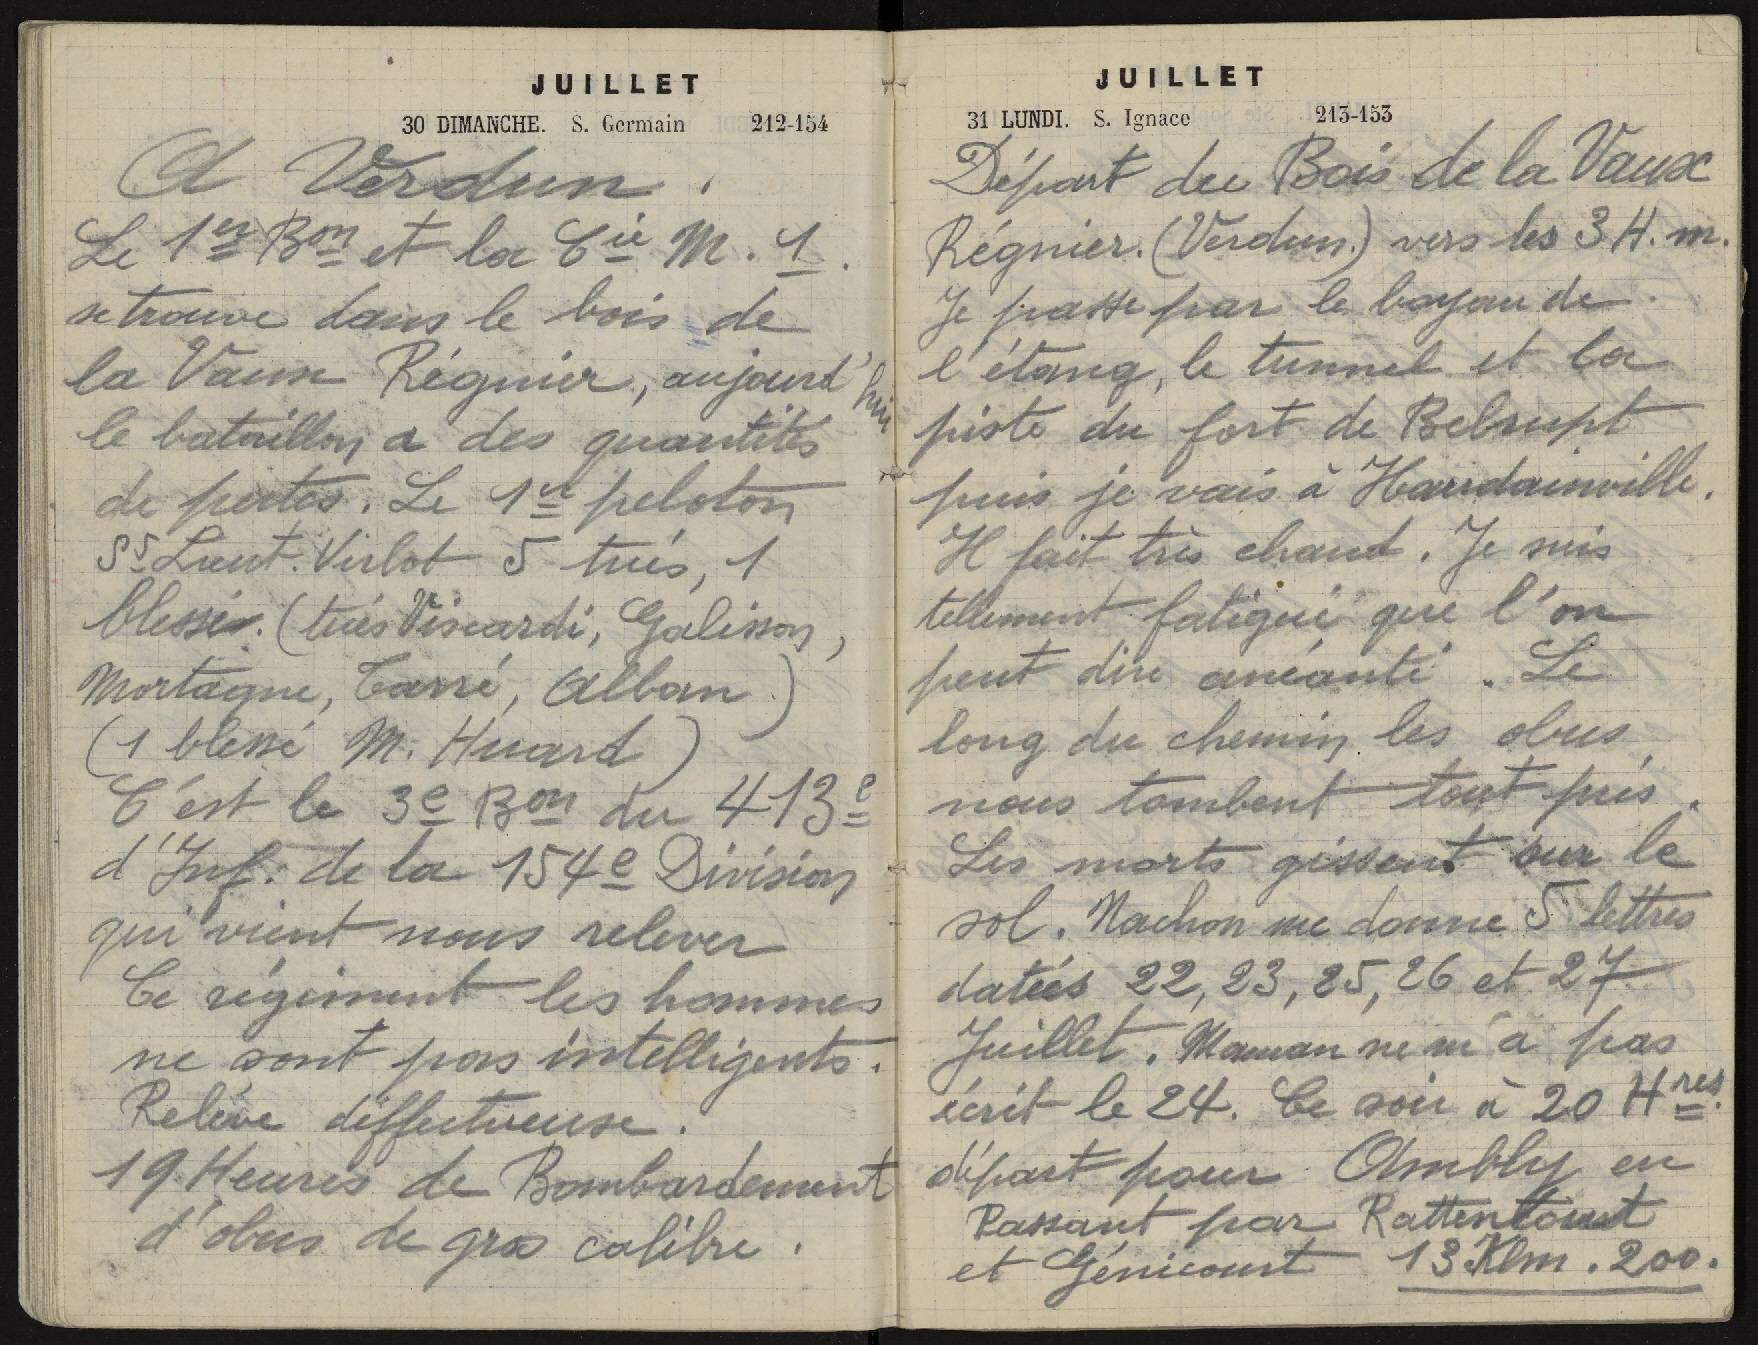 JUILLET
30 DIMANCHE. S. Germain 212-154
A Verdun.
Le 1er Bon et la Cie M. 1.
se trouve dans le bois de
la Vaux Régnier, aujourd'hui
le bataillon a des quantités
de pertes. Le 1er peloton
Ss Lieut. Virlot 5 tués, 1
blessé. (tués Viscardi, Galisson,
Mortagne, Carré, Alban.)
(1 blessé M. Huard)
C'est le 3e Bon du 413e
d'Inf. de la 154e Division
qui vient nous relever
Ce régiment les hommes
ne sont pas intelligents.
Relève déffectueuse.
19 Heures de Bombardement
d'obus de gros calibre.
JUILLET
31 LUNDI. S. Ignace 213-153
Départ du Bois de la Vaux
Régnier. (Verdun.) vers les 3 H. m.
Je passe par le boyau de
l'étang, le tunnel et la
piste du fort de Belrupt
puis je vais à Haudainville.
Il fait très chaud. Je suis
tellement fatigué que l'on
peut dire anéanti. Le
long du chemin les obus
nous tombent tout près.
Les morts gissent sur le
sol. Nachon me donne 5 lettres
datées 22, 23, 25, 26 et 27
Juillet. Maman ne m'a pas
écrit le 24. Ce soir à 20 Hres.
départ pour Ambly en
Passant par Rattentout
et Génicourt 13 Klm. 200.